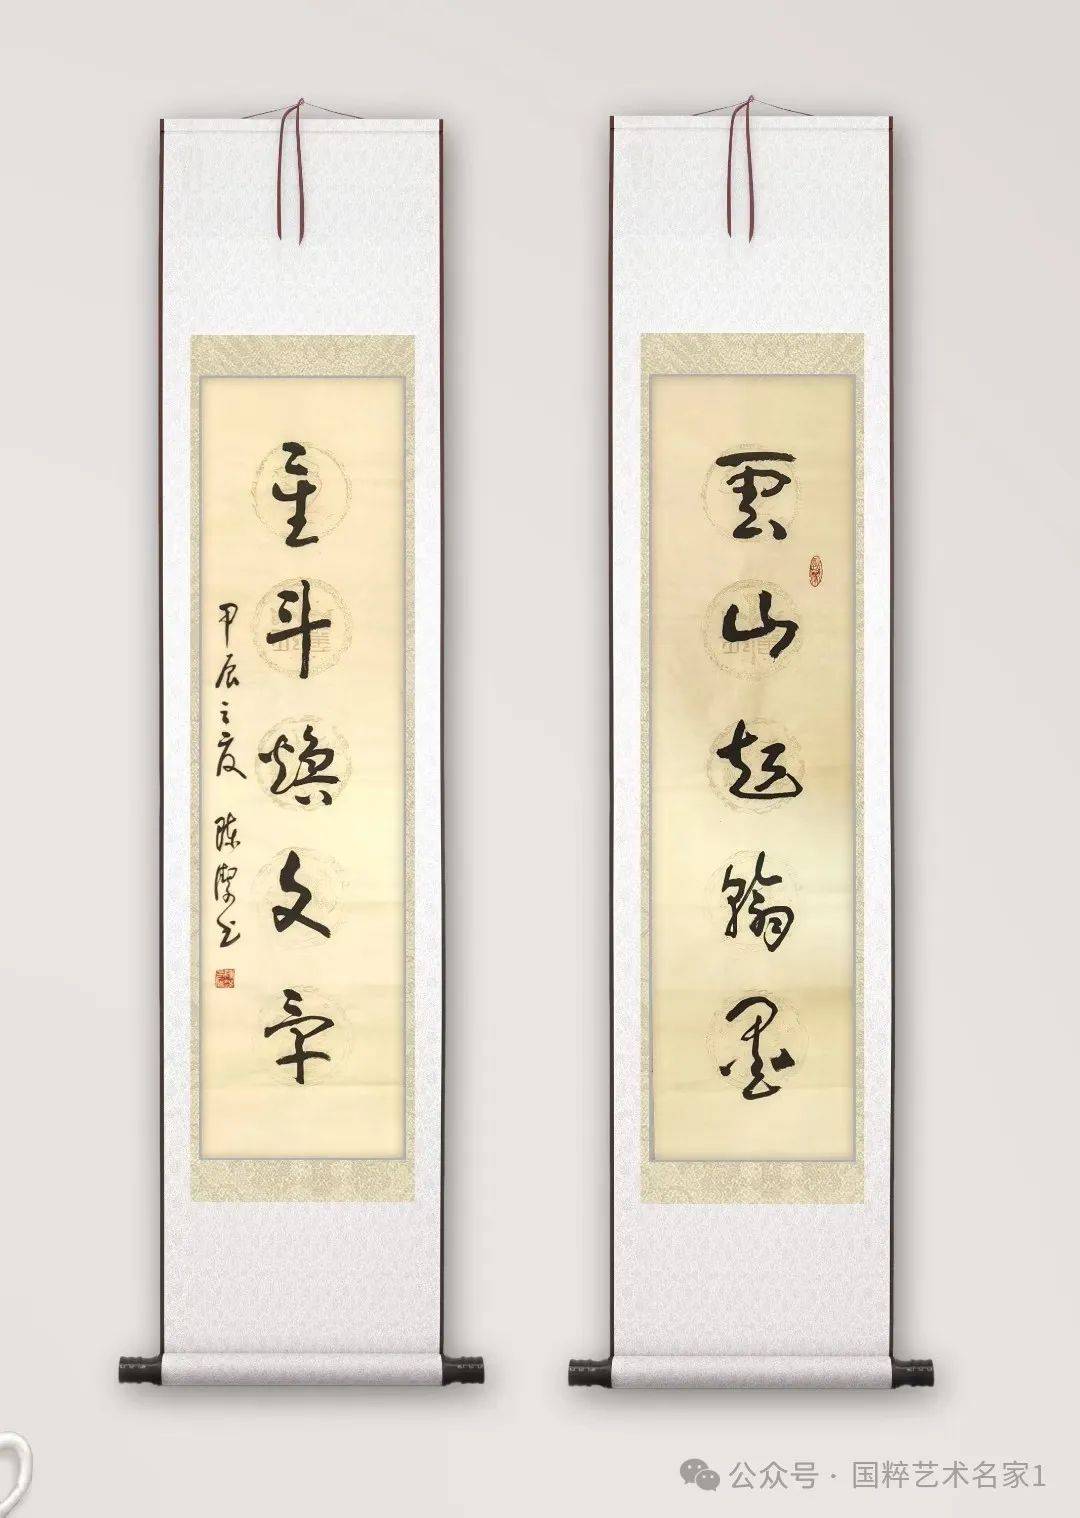 雲山起翰墨
星斗煥文章
甲辰之夏 陳潔书
公众号 · 国粹艺术名家1